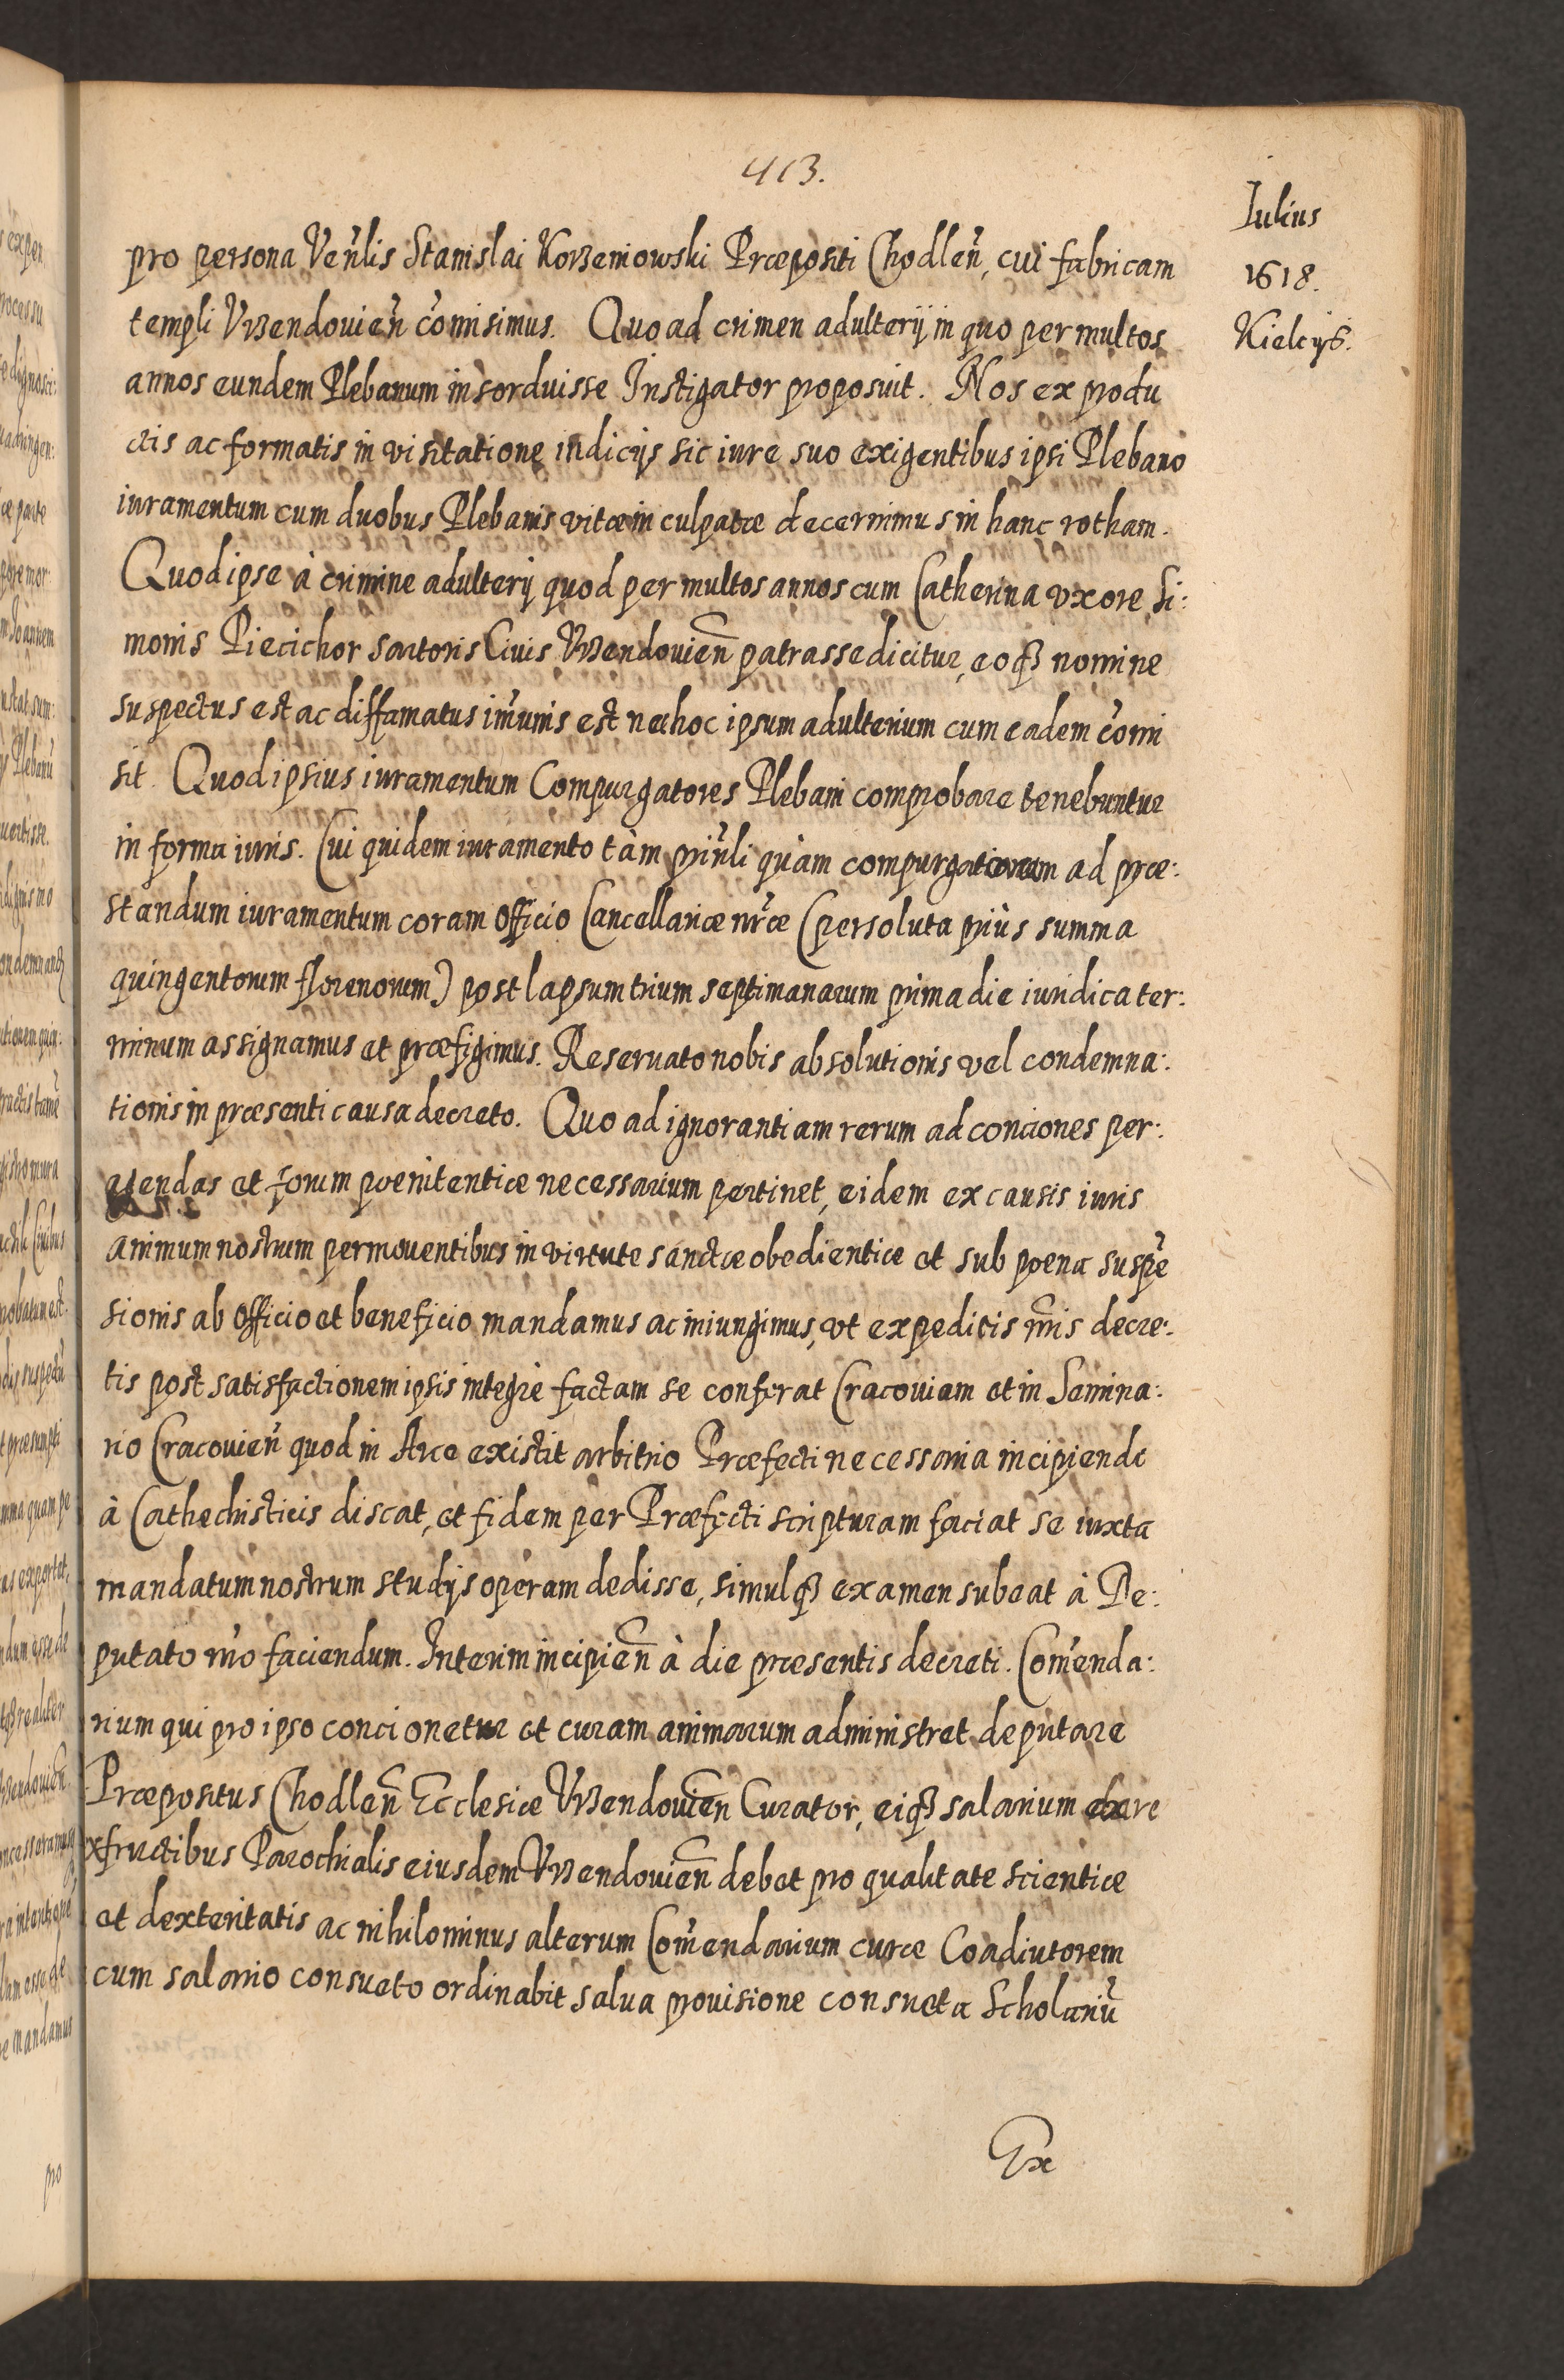 413.
Iulius
1618.
Kielcijs.
pro persona Veñlis Stanislai Korzeniowski Præpositi Chodleñ, cui fabricam
templi Vrzendouieñ cõmisimus. Quo ad crimen adulterij in quo per multos
annos eundem Plebanum insorduisse Instigator proposuit. Nos ex produ
ctis ac formatis in visitatione indicijs sic iure suo exigentibus ipsi Plebano
iuramentum cum duobus Plebanis vitæ inculpatæ decernimus in hanc rotham.
Quod ipse à crimine adulterij quod per multos annos cum Catherina vxore Si:
monis Piecichor sartoris Ciuis Vrzendouieñ patrasse dicitur, eoqȝ nomine
suspectus est ac diffamatus im̃unis est nec hoc ipsum adulterium cum eadem cõmi
sit. Quod ipsius iuramentum Compurgatores Plebani comprobare tenebuntur
in forma iuris. Cui quidem iuramento tàm prin̄li quàm compurgatorum ad præ:
standum iuramentum coram Officio Cancellariæ nr̃æ (persoluta priùs summa
quingentorum florenorum) post lapsum trium septimanarum prima die iuridica ter:
minum assignamus et præfigimus. Reseruato nobis absolutionis vel condemna:
tionis in præsenti causa decreto. Quo ad ignorantiam rerum ad conciones per:
agendas et forum pœnitentiæ necessarium pertinet, eidem ex causis iuris
animum nostrum permouentibus in virtute sanctæ obedientiæ et sub pœna suspẽ
sionis ab Officio et beneficio mandamus ac iniungimus, vt expeditis nr̃is decre:
tis post satisfactionem ipsis integrè factam se conferat Cracouiam et in Semina:
rio Cracouieñ quod in Arce existit arbitrio Præfecti necessaria incipiendo
à Cathechisticis discat, et fidem per Præfecti scripturam faciat se iuxta
mandatum nostrum studijs operam dedisse, simulqȝ examen subeat à De:
putato nr̃o faciendum. Interim incipieñ à die præsentis decreti. Com̃enda:
rium qui pro ipso concionetur et curam animarum administret deputare
Præpositus Chodleñ Ecclesiæ Vrzendouieñ Curator, eiqȝ salarium dare
ex fructibus Parochialis eiusdem Vrzendouieñ debet pro qualitate scientiæ
et dexteritatis ac nihilominus alterum Com̃endarium curæ Coadiutorem
cum salario consueto ordinabit salua prouisione consueta Scholariũ
Ex